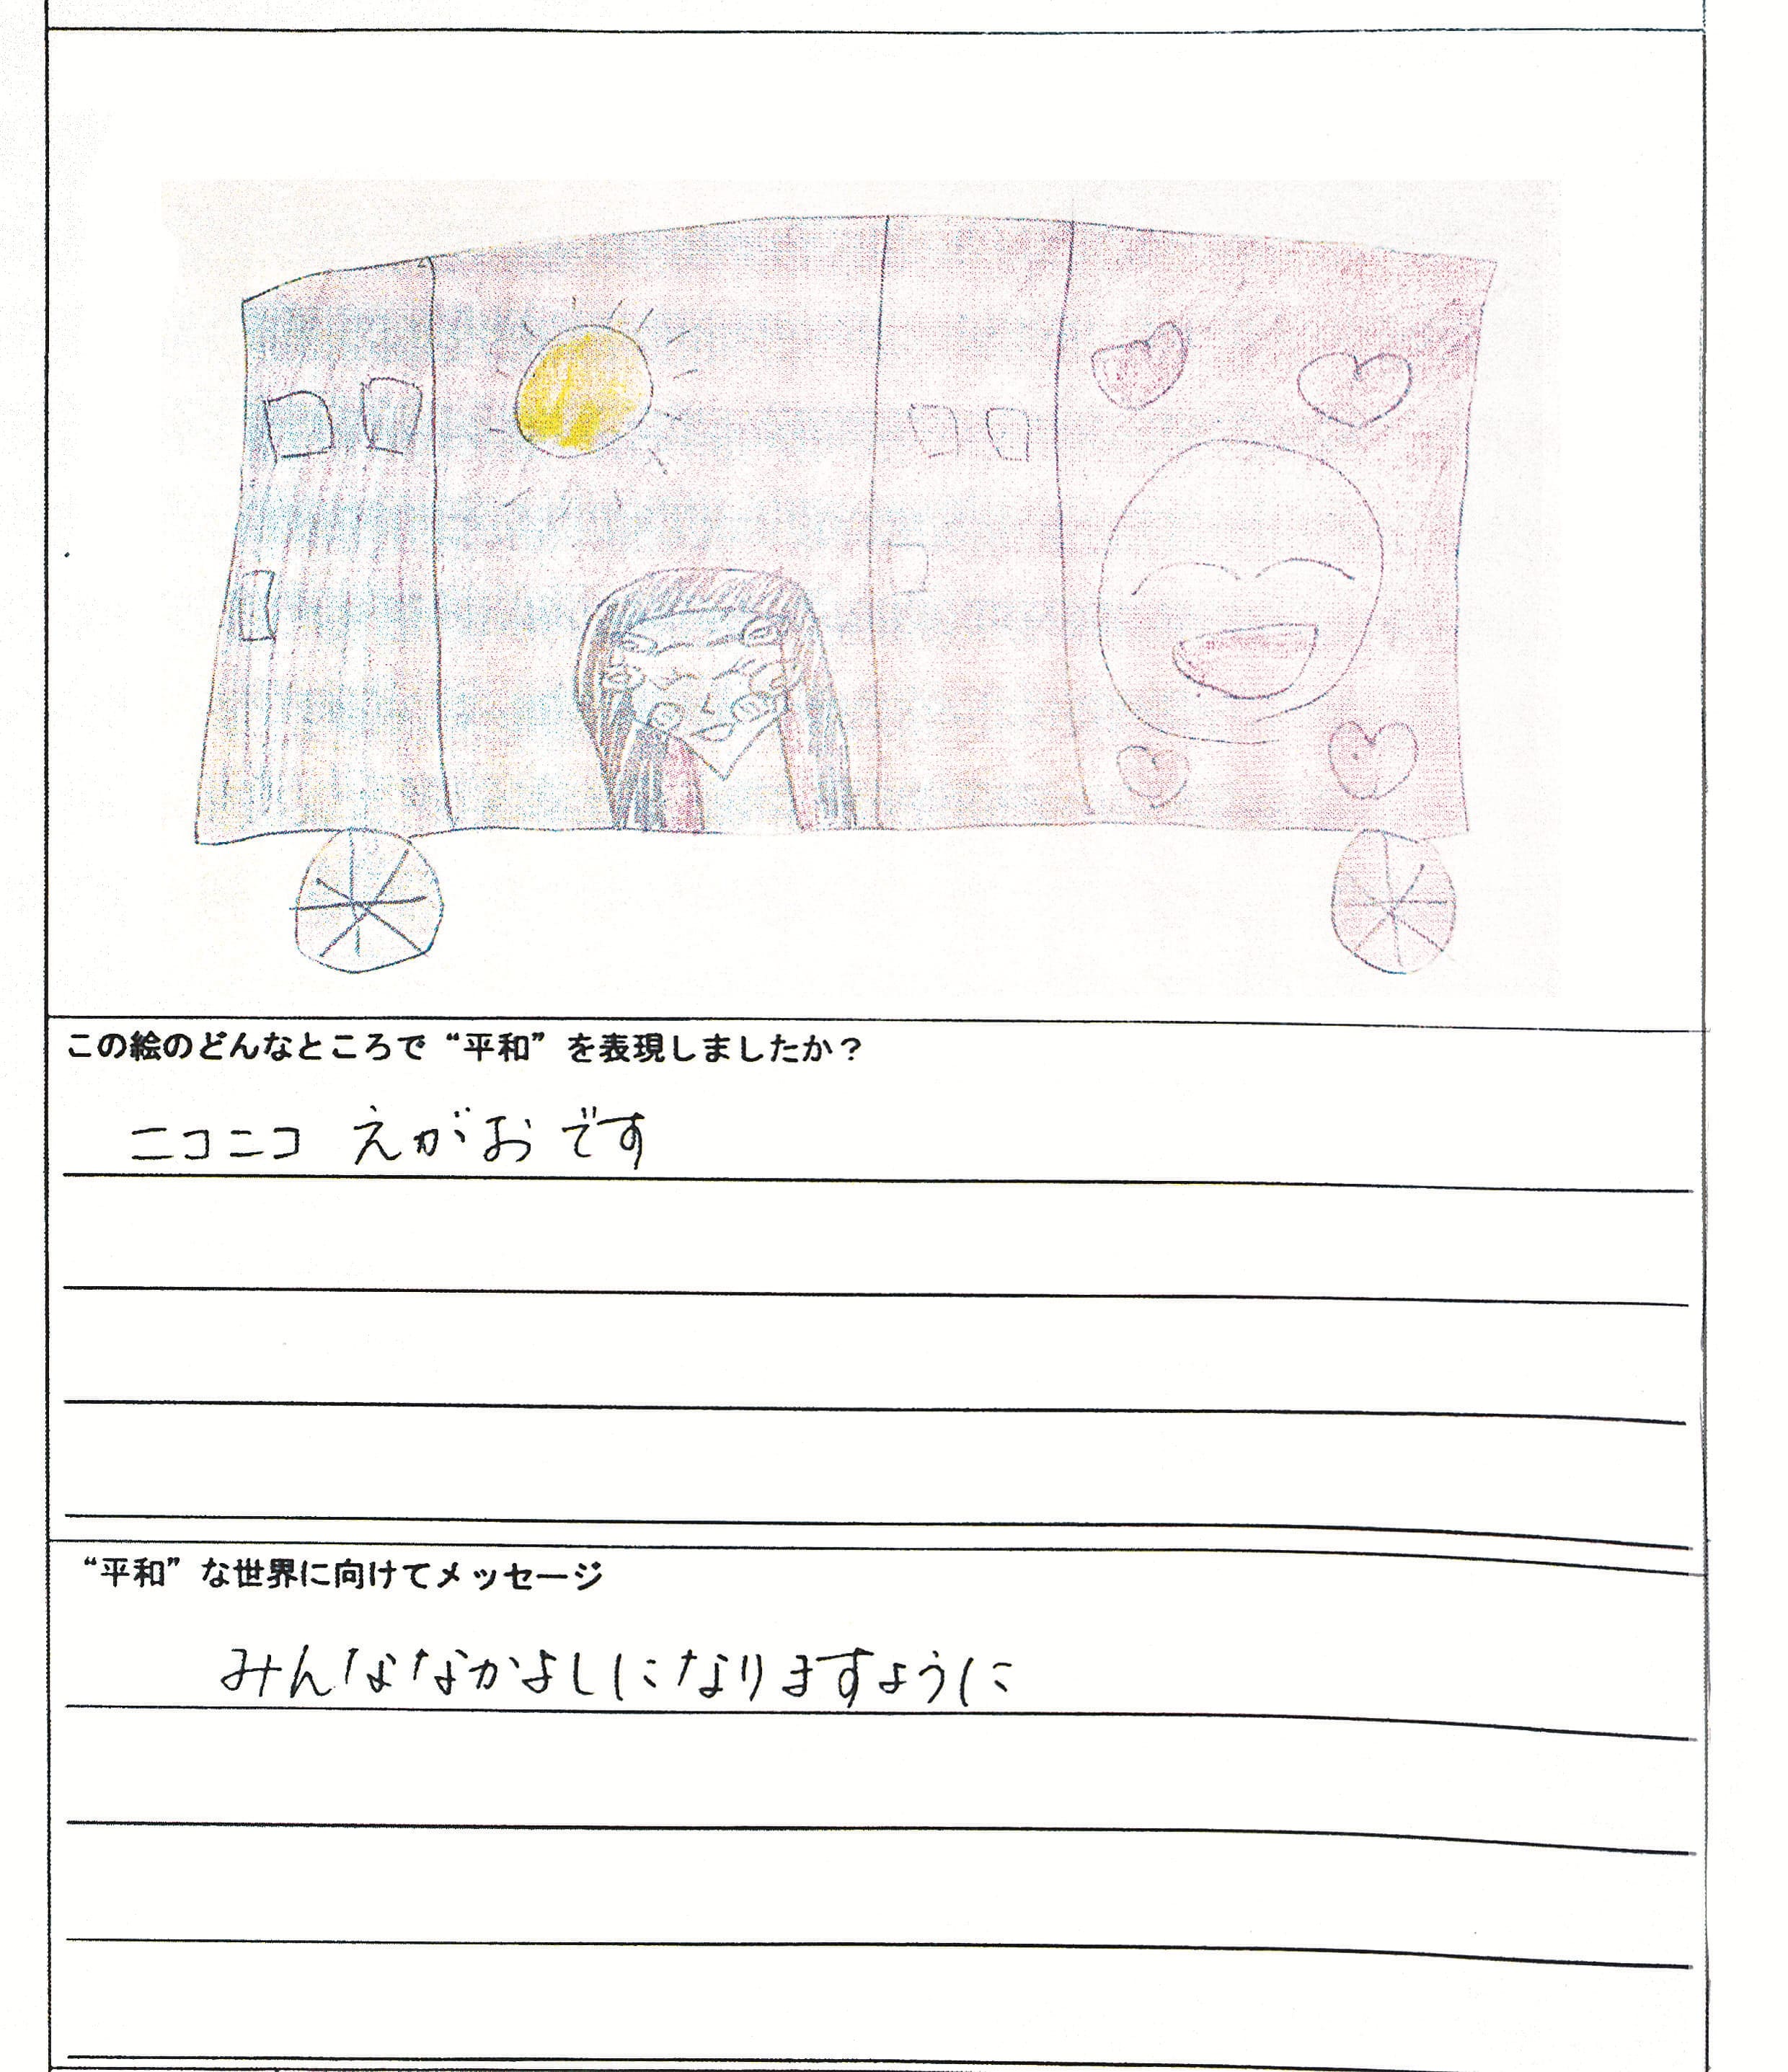 この絵のどんなところで“平和”を表現しましたか？
ニコニコ えがおです
“平和”な世界に向けてメッセージ
みんななかよしになりますように